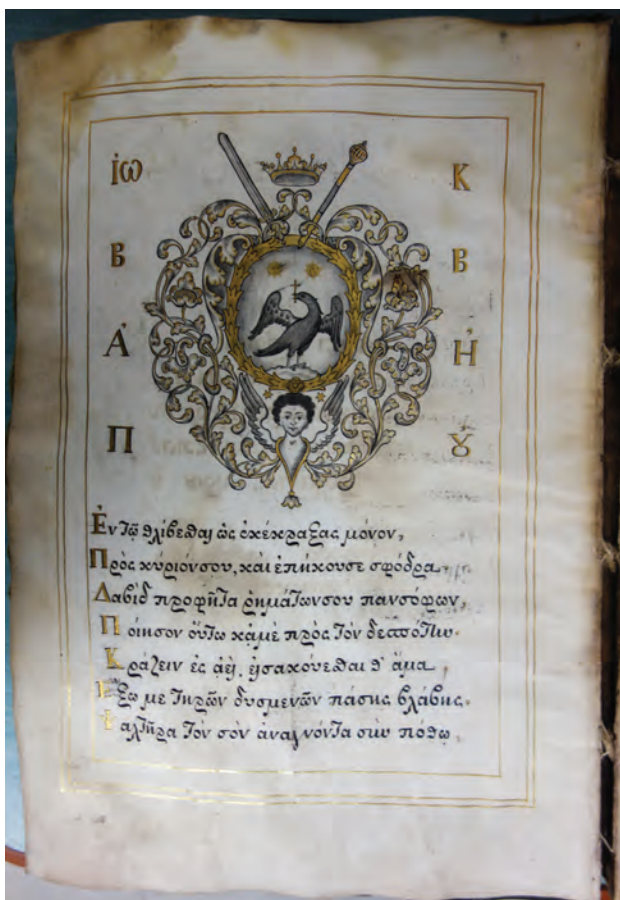 ἰω Κ
Β Β
Ἀ Ἠ
Π Ȣ
Ἐν τῷ θλίβεσθαι ὡς ἐκέκραξας μόνον,
Πρὸς κύριόνσου, καὶ ἐπήκουσε σφόδρα·
Δαβὶδ προφῆτα ῥημάτωνσου πανσόφων,
Ποίησον οὕτω κἀμὲ πρὸς τὸν δεσπότην·
Κράζειν ἐς ἀεὶ, εἰσακούεσθαι θ' ἅμα,
Ἔξω με τηρῶν δυσμενῶν πάσης βλάβης.
Ψαλτῆρα τὸν σὸν ἀναγνόντα σὺν πόθῳ,